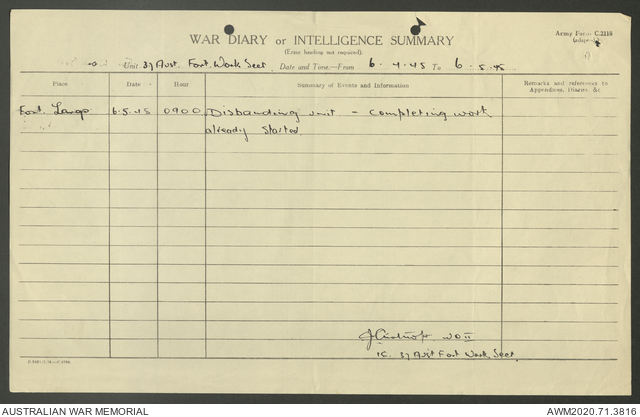 WAR DIARY or INTELLIGENCE SUMMARY
(Erase heading not required).
Army Form C.2118
Unit 37 Aust. Fort. Work Sect Date and Time—From 6.4.45 To 6.5.45
Place Date Hour Summary of Events and Information Remarks and references to
Appendices, Diaries, &c
Fort 6.5.45 0900 Disbanding unit – completing work
already started
WO II
IC. 37 Aust Fort Work Sect
AUSTRALIAN WAR MEMORIAL AWM2020.71.3816